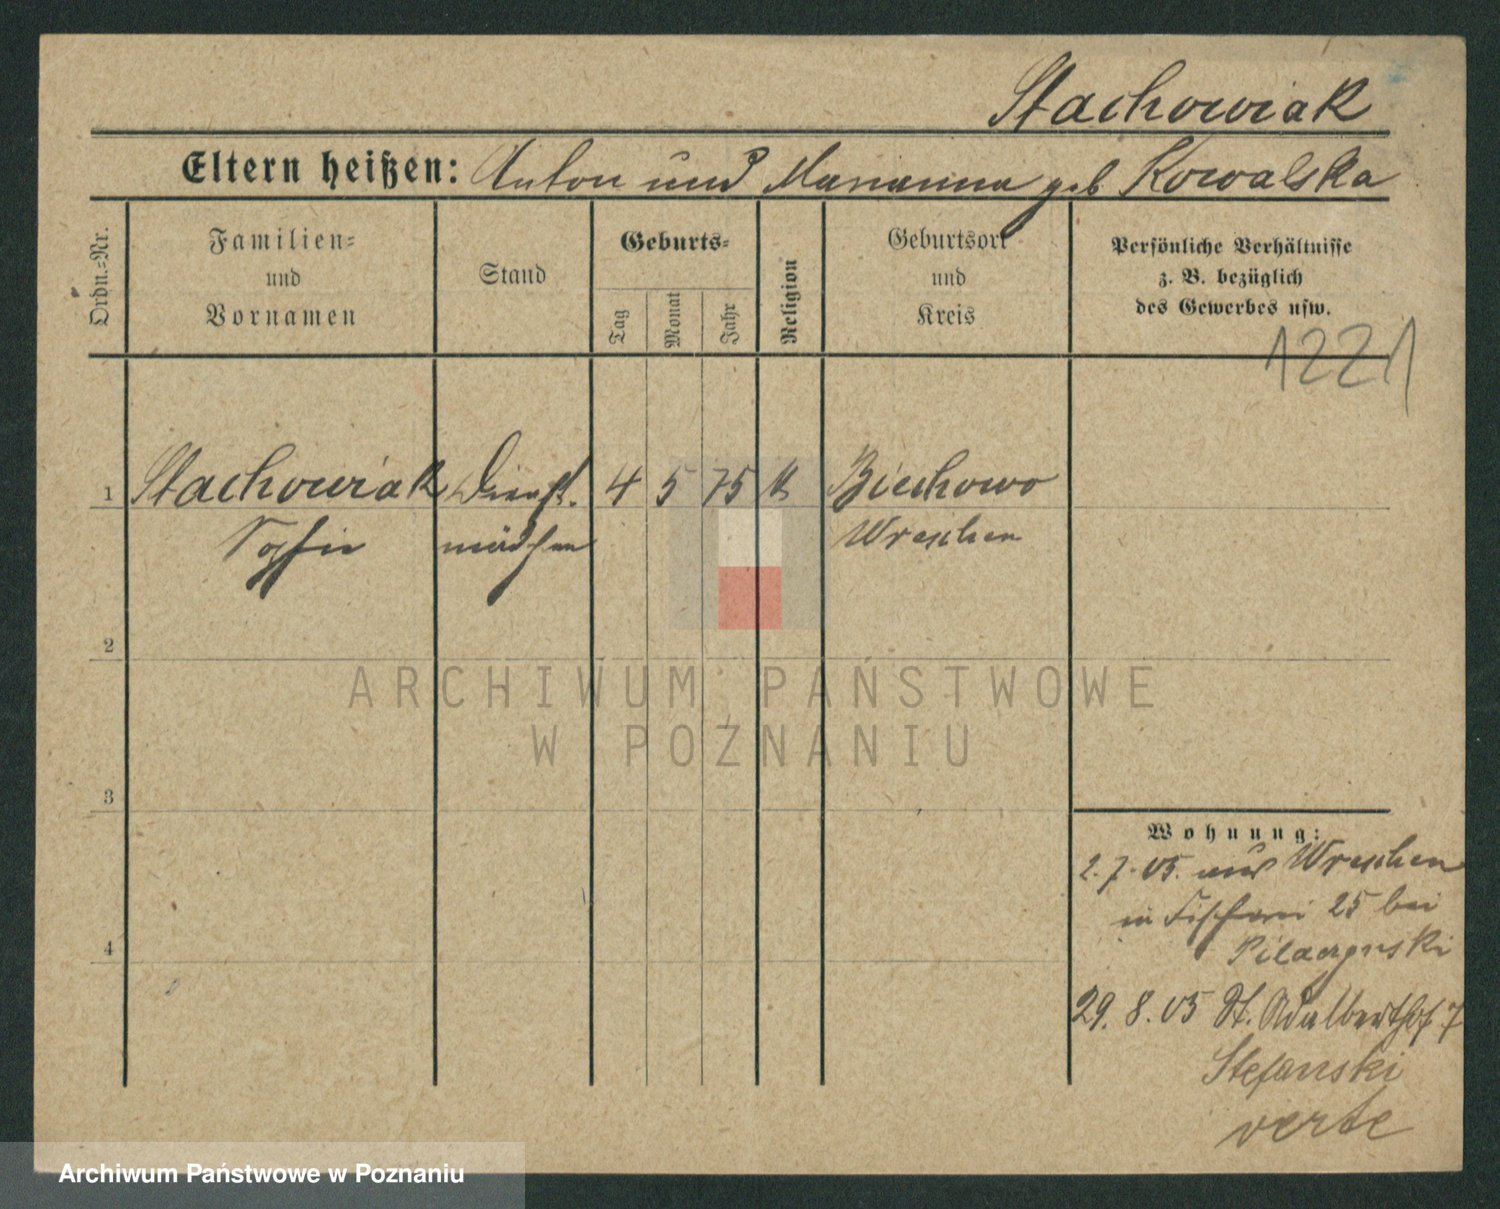 Stachowiak
Eltern heißen: Anton und Marianna geb Kowalska
Ordn.=Nr.
Familien=
und
Vornamen
Stand
Geburts=
Tag
Monat
Jahr
Religion
Geburtsort
und
Kreis
Persönliche Verhältnisse
z. B. bezüglich
des Gewerbes usw.
1221
1 Stachowiak Dienst. 4 5 75 k Biechowo
Sophie mädchen Wreschen
2
3
4
Wohnung:
2.7.05. aus Wreschen
in Fischerei 25 bei
29. 8. 05 St. Adalberthof 7
Stefanski
verte
ARCHIWUM PAŃSTWOWE
W POZNANIU
Archiwum Państwowe w Poznaniu